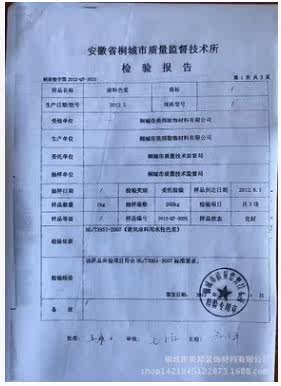 安徽省桐城市质量监督技术所
检验报告
第1页共2页
样品名称 涂料色浆 商标
生产日期/型号 2012.5 规格型号
受检单位 桐城市美邦装饰材料有限公司
生产单位 桐城市美邦装饰材料有限公司
委托单位 桐城市质量技术监督局
抽样单位 桐城市质量技术监督局
抽样日期 / 检验类别 委托检验 样品到达日期 2012.6.1
样品数量 1kg 抽样基数 200kg
样品等级 / 样品编号 2012-QT-202G 样品状态 完好
检验依据 HG/T3951-2007《建筑涂料用水性色浆》
检验结论 该样品所检项目符合HG/T3951-2007标准要求。
批准: 审核: 主检:
桐城市美邦装饰材料有限公司
shop1421945122873.1688.com